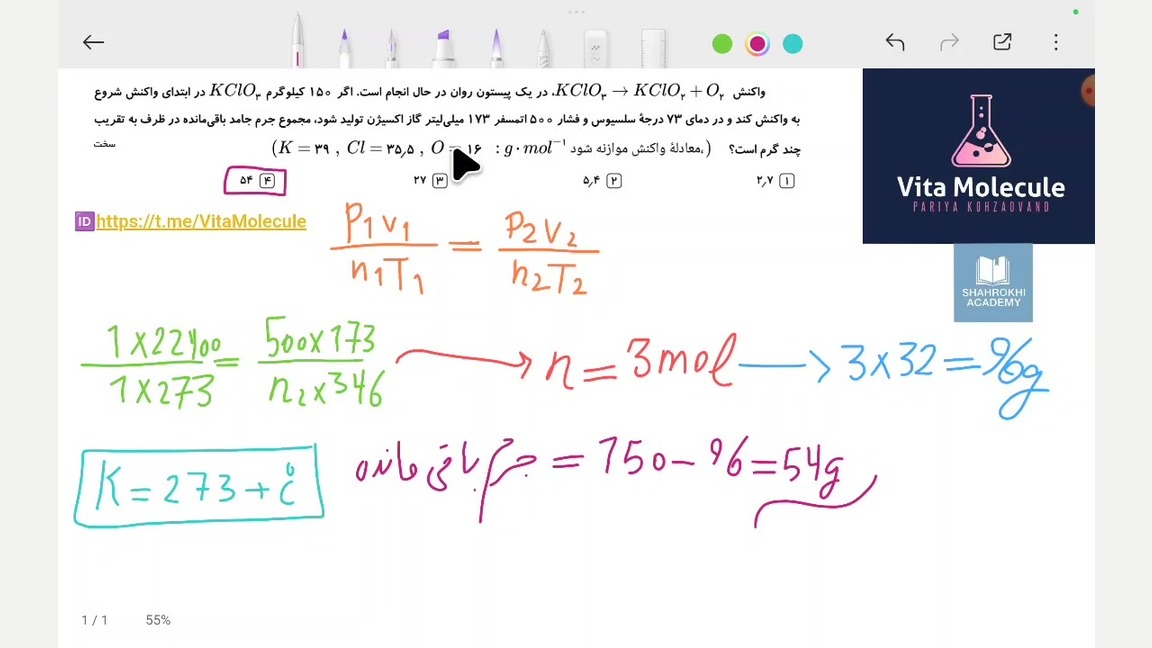 واکنش KClO۳ → KClO۲ + O۲، در یک پیستون روان در حال انجام است. اگر ۱۵۰ کیلوگرم KClO۳ در ابتدای واکنش شروع
به واکنش کند و در دمای ۷۳ درجهٔ سلسیوس و فشار ۵۰۰ اتمسفر ۱۷۳ میلی‌لیتر گاز اکسیژن تولید شود، مجموع جرم جامد باقی‌مانده در ظرف به تقریب
چند گرم است؟ (،معادلهٔ واکنش موازنه شود K = ۳۹ , Cl = ۳۵٫۵ , O = ۱۶ : g·mol⁻¹)
سخت
۱ ۲٫۷
۲ ۵٫۴
۳ ۲۷
۴ ۵۴
Vita Molecule
PARIYA KOHZADVAND
SHAHROKHI
ACADEMY
ID https://t.me/VitaMolecule
P1V1/n1T1 = P2V2/n2T2
1×22400/1×273 = 500×173/n2×346 → n = 3mol → 3×32 = 96g
K = 273 + C°
جرم باقی مانده = 150 - 96 = 54g
1 / 1 55%